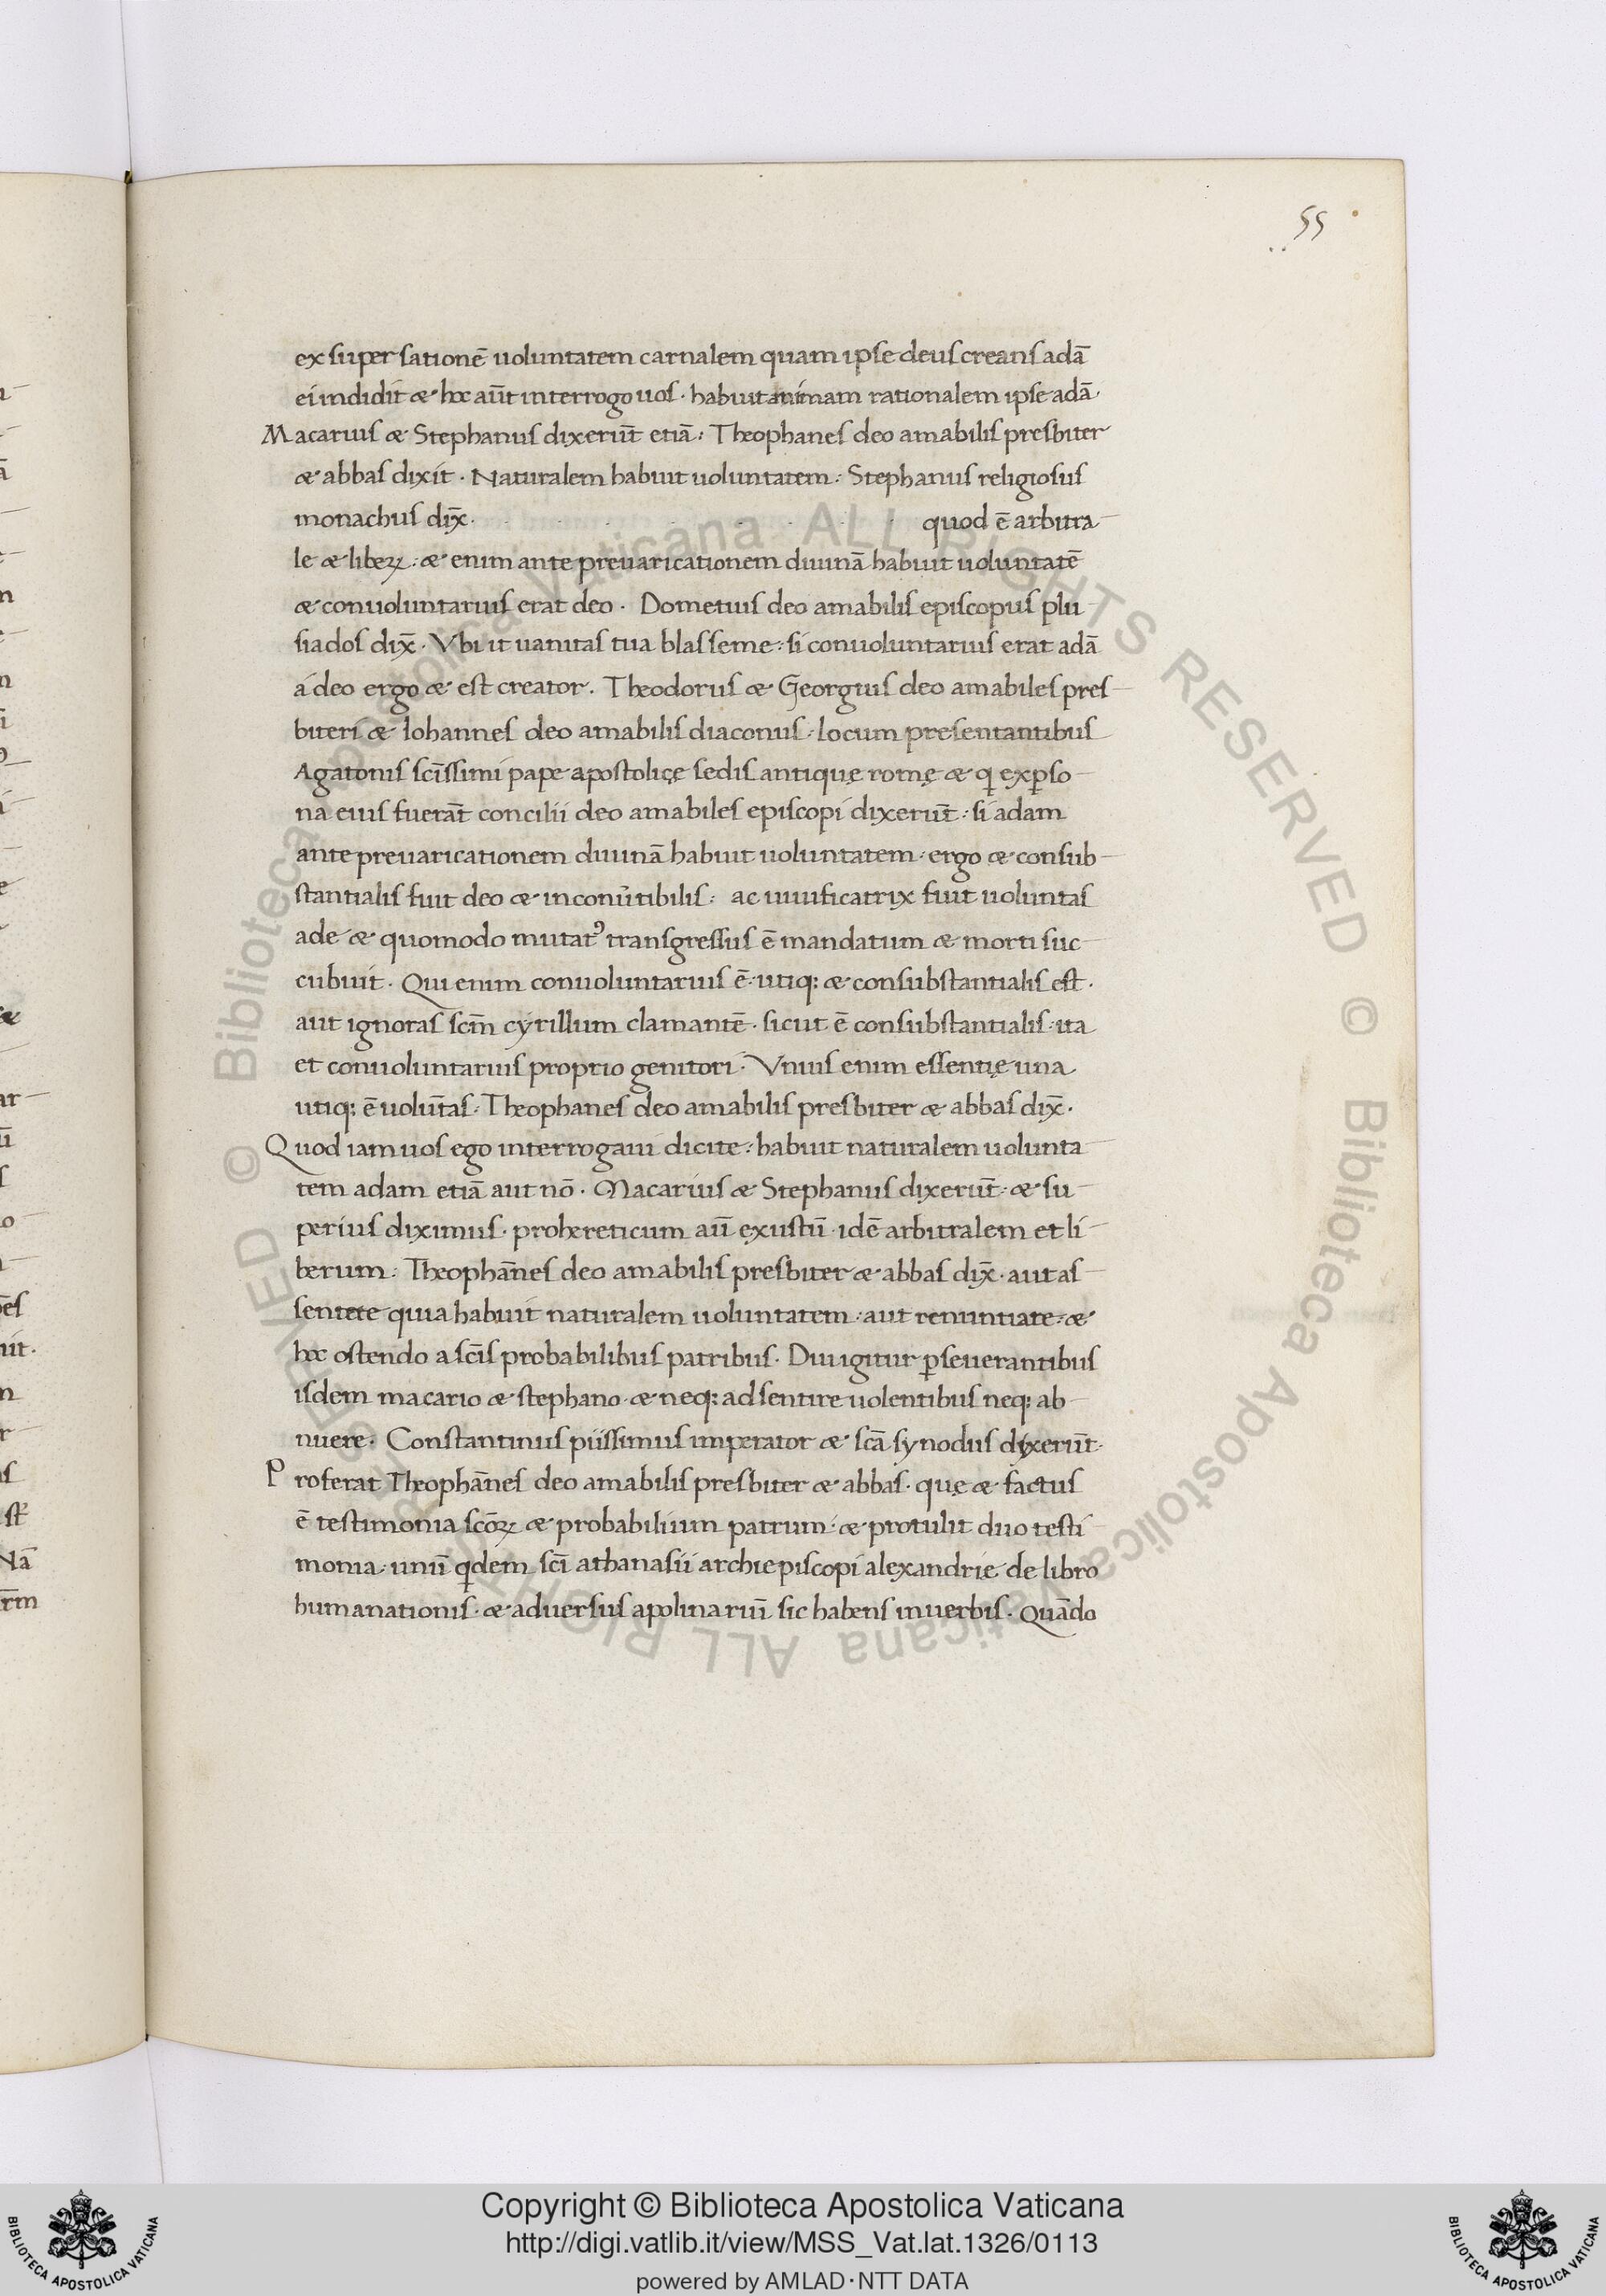 55
ex super sationē uoluntatem carnalem quam ipse deus creans adā
ei indidit & hoc aūt interrogo uos · habuit animam rationalem ipse adā·
Macarius & Stephanus dixerūt etiā: Theophanes deo amabilis presbiter
& abbas dixit · Naturalem habuit uoluntatem: Stephanus religiosus
monachus dix̄ · quod ē arbitra
le & liberꝝ: & enim ante preuaricationem diuinā habuit uoluntatē
& conuoluntarius erat deo · Dometius deo amabilis episcopus plu
siados dix̄ · Vbi it uanitas tua blasseme: si conuoluntarius erat adā
a deo ergo & est creator. Theodorus & Georgius deo amabiles pres
biteri & Iohannes deo amabilis diaconus · locum presentantibus
Agatonis scīssimi pape apostolicę sedis antiquę romę & q ex ꝑso
na eius fuerāt concilii deo amabiles episcopi dixerūt: si adam
ante preuaricationem diuinā habuit uoluntatem: ergo & consub
stantialis fuit deo & inconūtibilis: ac uiuificatrix fuit uoluntas
ade & quomodo mutatꝰ transgressus ē mandatum & morti suc
cubuit · Qui enim conuoluntarius ē · utiq; & consubstantialis est ·
aut ignoras scm̄ cyrillum clamantē · sicut ē consubstantialis · ita
et conuoluntarius proprio genitori · Vnius enim essentię una
utiq; ē uolūtas · Theophanes deo amabilis presbiter & abbas dix̄ ·
Quod iam uos ego interrogaui dicite: habuit naturalem uolunta
tem adam etiā aut nō · Macarius & Stephanus dixerūt: & su
perius diximus · prohereticum aū exustū · idē arbitralem et li
berum: Theophānes deo amabilis presbiter & abbas dix̄ · aut as
sentete quia habuit naturalem uoluntatem: aut renuntiate: &
hoc ostendo a scīs probabilibus patribus · Diu igitur ꝑseuerantibus
isdem macario & stephano · & neq; adsentire uolentibus neq; ab
nuere · Constantinus piissimus imperator & scā synodus dixerūt ·
Proferat Theophānes deo amabilis presbiter & abbas · quę & factus
ē testimonia scōꝝ & probabilium patrum: & protulit duo testi
monia · unū qdem scī athanasii archiepiscopi alexandrię de libro
humanationis · & aduersus apolinariū sic habens in uerbis · Quādo
Copyright © Biblioteca Apostolica Vaticana
http://digi.vatlib.it/view/MSS_Vat.lat.1326/0113
powered by AMLAD·NTT DATA